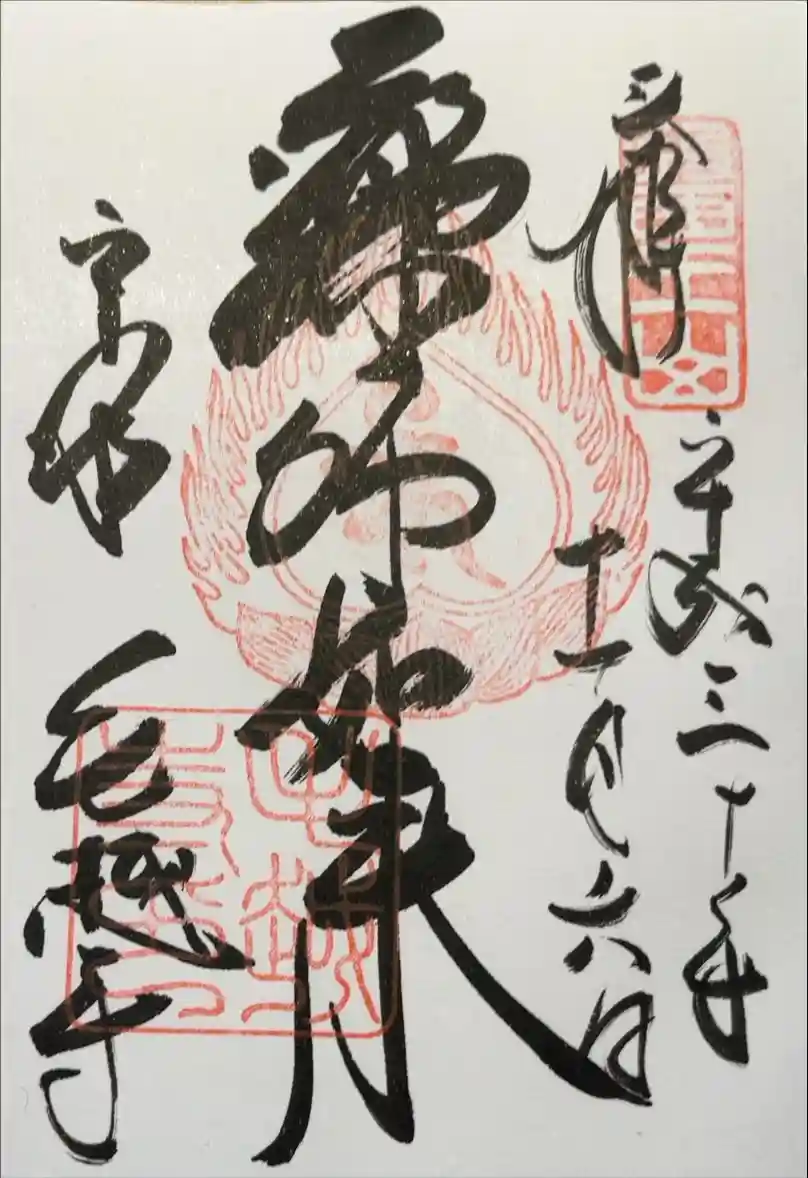 奉拝
平成三十年
十一月六日
薬師如来
平泉
毛越寺